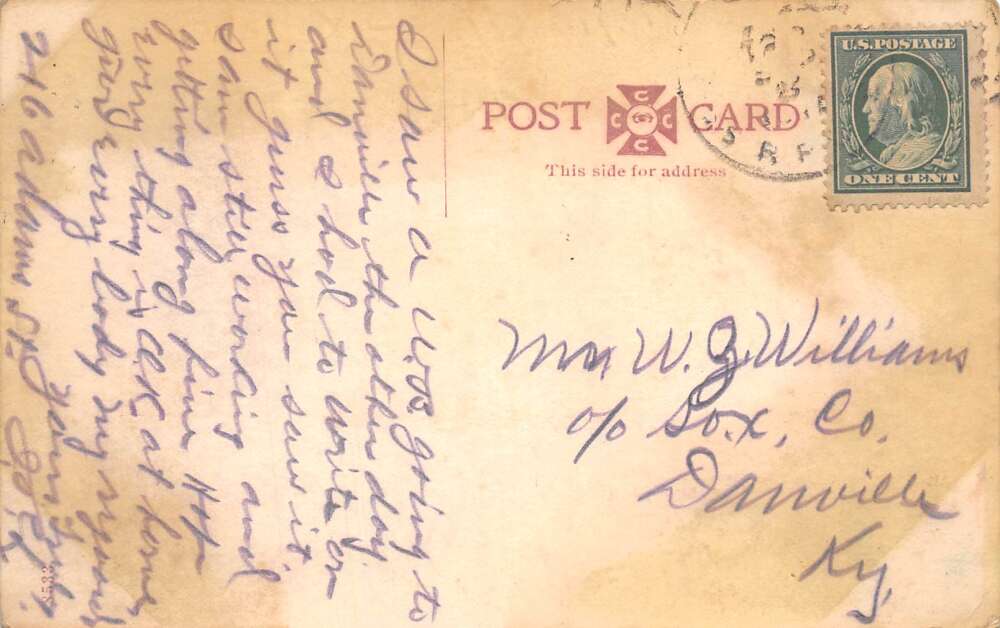 I saw a going to
Danville the other day.
and I had to write or
it guess you saw it
Sam still working and
getting along fine Hope
every thing is at home
give every body my regards
216 adams St. Yours Truly
8533
POST CARD
C C C C
This side for address
U.S. POSTAGE
ONE CENT
W. Williams
c/o So.x. Co.
Danville
Ky.